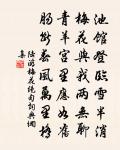 池館登臨雪半消
梅花與我兩無聊
青羊宮里應如舊
腸斷春風萬里橋
陸游梅花絕句詞典網
集